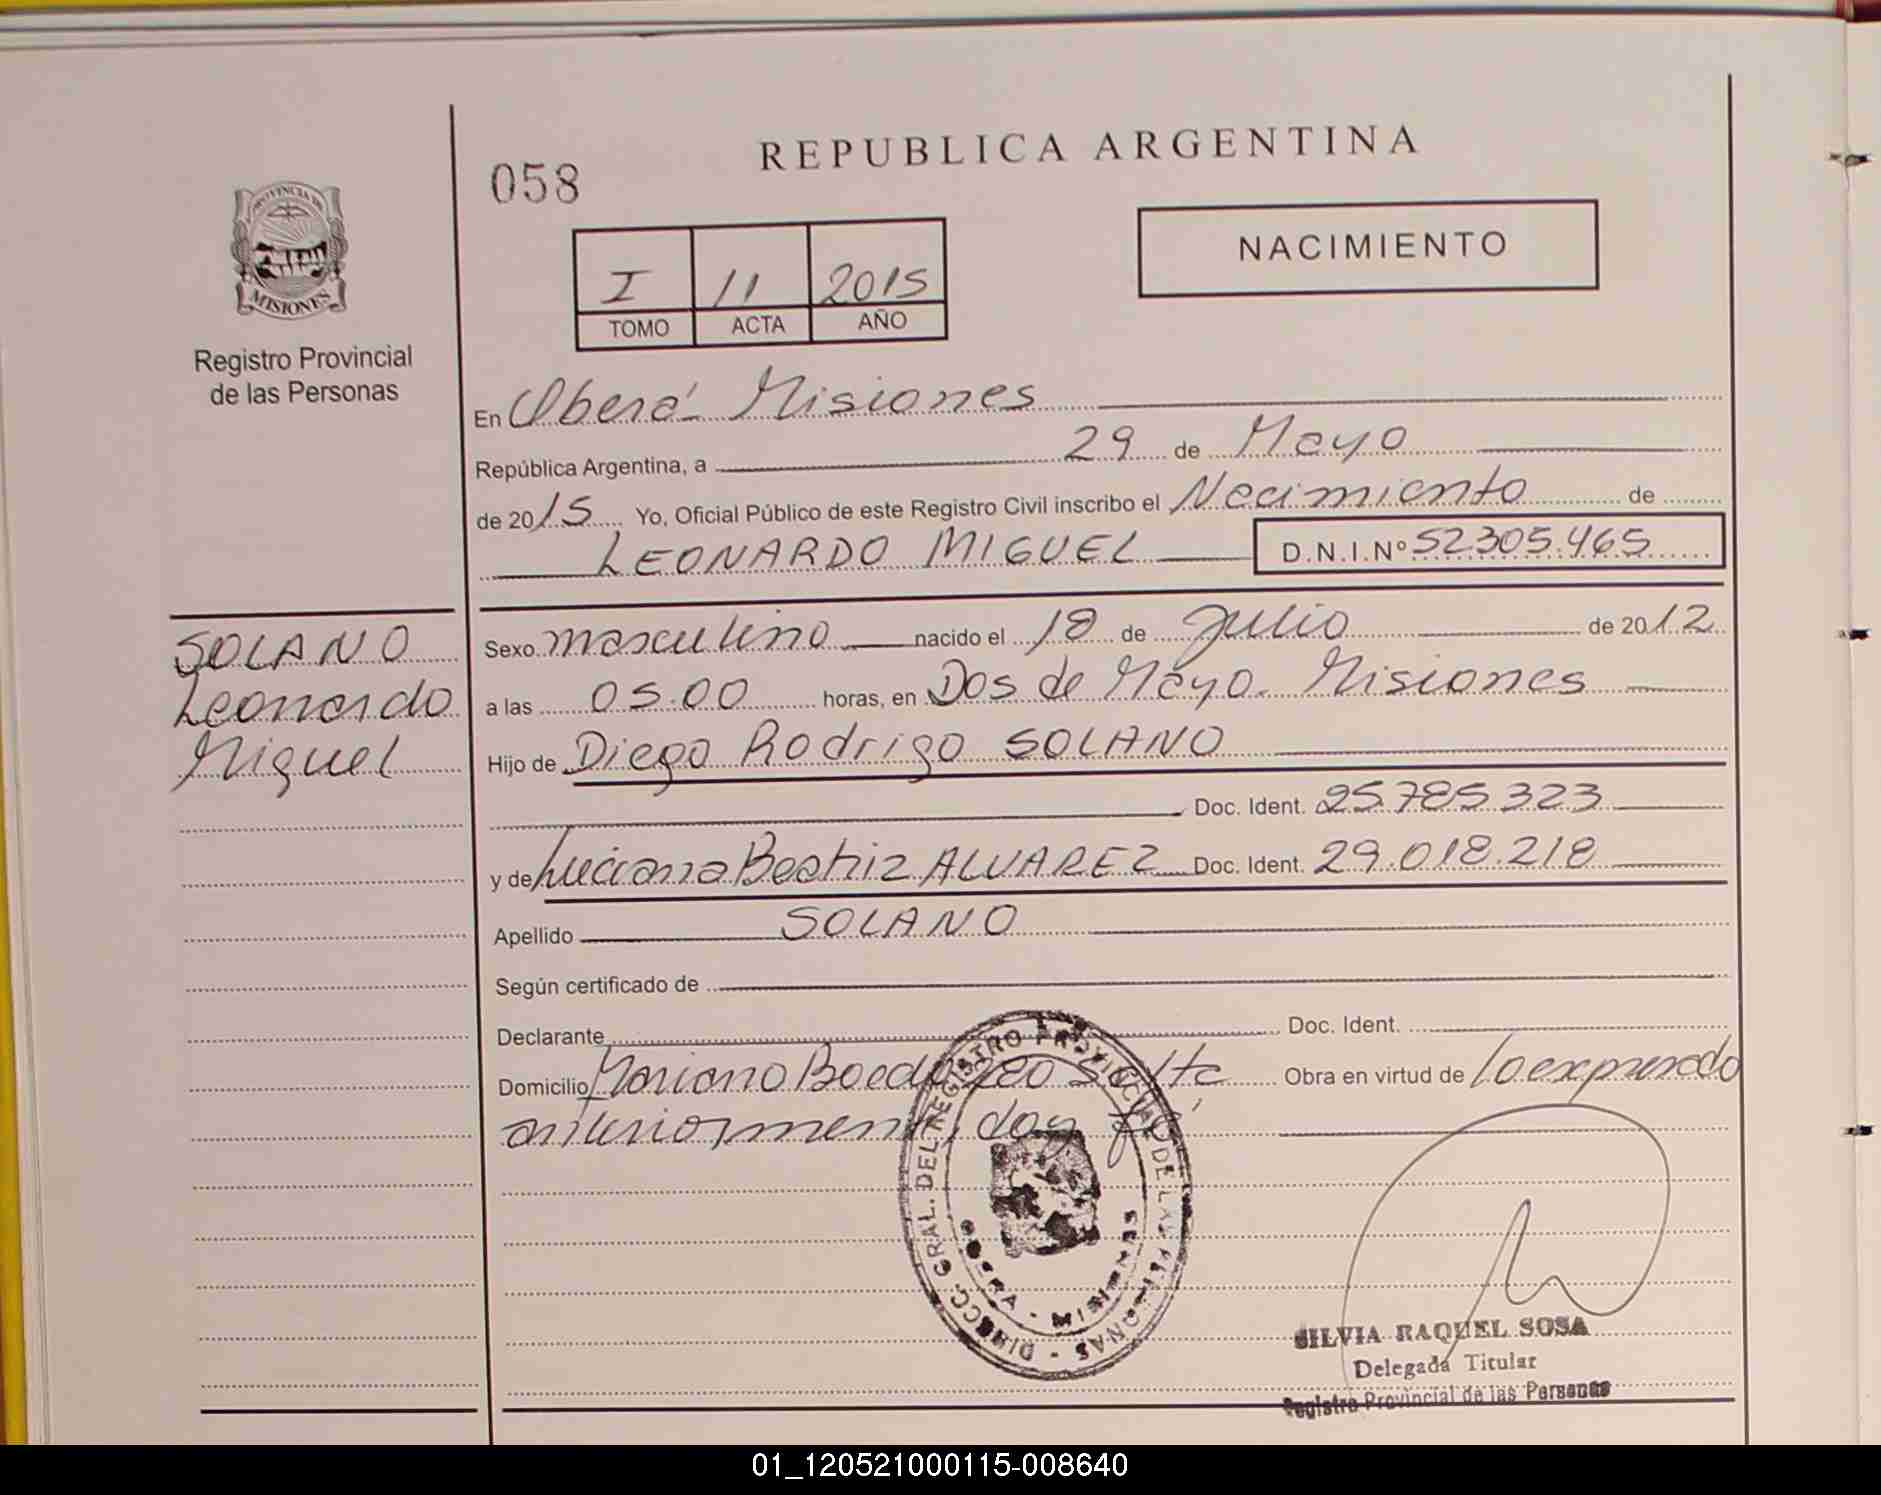 REPUBLICA ARGENTINA
058
NACIMIENTO
I 11 2015
TOMO ACTA AÑO
PROVINCIA DE
MISIONES
Registro Provincial
de las Personas
En Oberá - Misiones
República Argentina, a 29 de Mayo
de 2015 Yo, Oficial Público de este Registro Civil inscribo el Nacimiento de
LEONARDO MIGUEL D.N.I.Nº 52305.465
SOLANO
Leonardo
Miguel
Sexo masculino nacido el 18 de Julio de 2012
a las 05.00 horas, en Dos de Mayo. Misiones
Hijo de Diego Rodrigo SOLANO
Doc. Ident. 25.785.323
y de Luciana Beatriz ALVAREZ Doc. Ident. 29.018.218
Apellido SOLANO
Según certificado de
Declarante Doc. Ident.
Domicilio Mariano Boedo Salta Obra en virtud de lo expresado
anteriormente, doy fé
DIRECC. GRAL. DEL REGISTRO PROVINCIAL DE LAS PERSONAS -
OBERA - MISIONES
SILVIA RAQUEL SOSA
Delegada Titular
Registro Provincial de las Personas
01_120521000115-008640